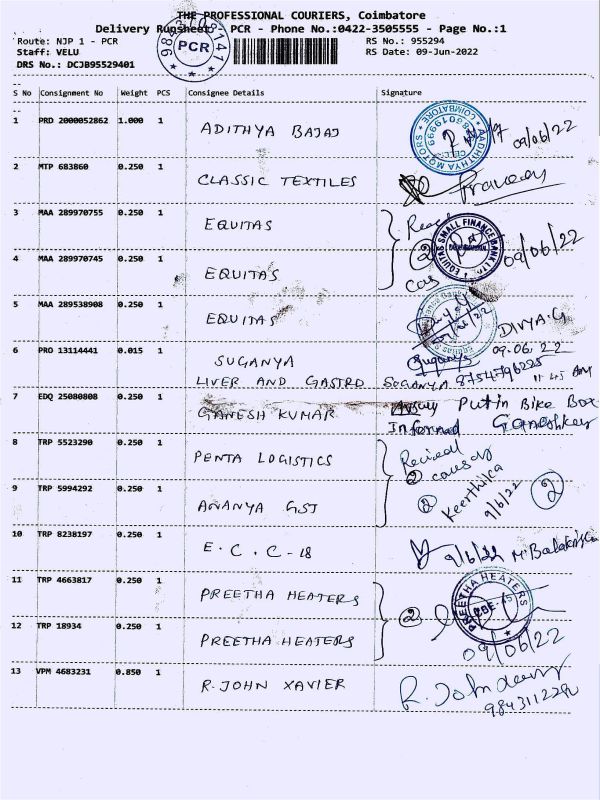 THE PROFESSIONAL COURIERS, Coimbatore
Delivery Runsheet PCR - Phone No.:0422-3505555 - Page No.:1
Route: NJP 1 - PCR RS No.: 955294
Staff: VELU RS Date: 09-Jun-2022
DRS No.: DCJB95529401
PCR
S No Consignment No Weight PCS Consignee Details Signature
1 PRD 2000052862 1.000 1 ADITHYA BAJAJ 09/06/22
AADHITHYA MOTORS COIMBATORE
2 MTP 683860 0.250 1 CLASSIC TEXTILES Praveen
3 MAA 289970755 0.250 1 EQUITAS
EQUITAS SMALL FINANCE BANK LTD.
4 MAA 289970745 0.250 1 EQUITAS 2 09/06/22
5 MAA 289538908 0.250 1 EQUITAS DIVYA.G
09.06.22
6 PRO 13114441 0.015 1 SUGANYA Suganya
LIVER AND GASTRO SUGANYA 8754796225 11 45 AM
7 EDQ 25080808 0.250 1 GANESH KUMAR Put in Bike Box
Informed
8 TRP 5523290 0.250 1 PENTA LOGISTICS
2
9 TRP 5994292 0.250 1 ANANYA GST 2 Keerthika 9/6/22 2
10 TRP 8238197 0.250 1 E.C.C-18 9/6/22
11 TRP 4663817 0.250 1 PREETHA HEATERS 2
PREETHA HEATERS CBE-45
12 TRP 18934 0.250 1 PREETHA HEATERS 09/06/22
13 VPM 4683231 0.850 1 R.JOHN XAVIER